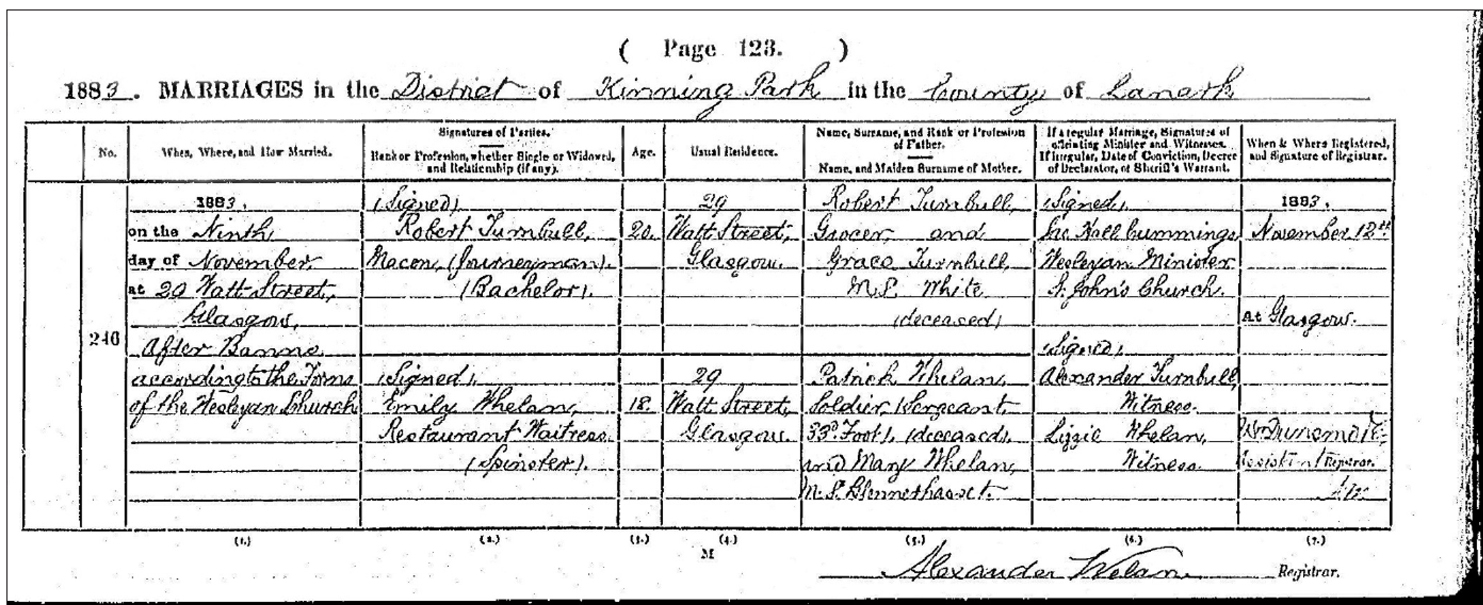 ( Page 123. )
1883. MARRIAGES in the District of Kinning Park in the County of Lanark
No.
When, Where, and How Married.
Signatures of Parties.
Rank or Profession, whether Single or Widowed,
and Relationship (if any).
Age.
Usual Residence.
Name, Surname, and Rank or Profession
of Father.
Name, and Maiden Surname of Mother.
If a regular Marriage, Signatures of
officiating Minister and Witnesses.
If Irregular, Date of Conviction, Decree
of Declarator, or Sheriff's Warrant.
When & Where Registered,
and Signature of Registrar.
246
1883,
on the Ninth
day of November
at 29 Watt Street,
Glasgow,
After Banns
according to the Forms
of the Wesleyan Church
(Signed)
Robert Turnbull,
Mason, (Journeyman).
(Bachelor).
(Signed),
Emily Whelan,
Restaurant Waitress
(Spinster).
20.
18.
29
Watt Street,
Glasgow.
29
Watt Street,
Glasgow.
Robert Turnbull,
Grocer, and
Grace Turnbull,
M.S. White
(deceased)
Patrick Whelan,
Soldier (Sergeant
33d Foot), (deceased),
and Mary Whelan,
M.S. Blennerhasset.
(Signed),
Jno Hall Cummings
Wesleyan Minister
St. John's Church.
(Signed),
Alexander Turnbull,
Witness.
Lizzie Whelan,
Witness.
1883,
November 12th
at Glasgow.
Wm
Assistant Registrar.
(1.) (2.) (3.) (4.) (5.) (6.) (7.)
M
Alexander Welan Registrar.